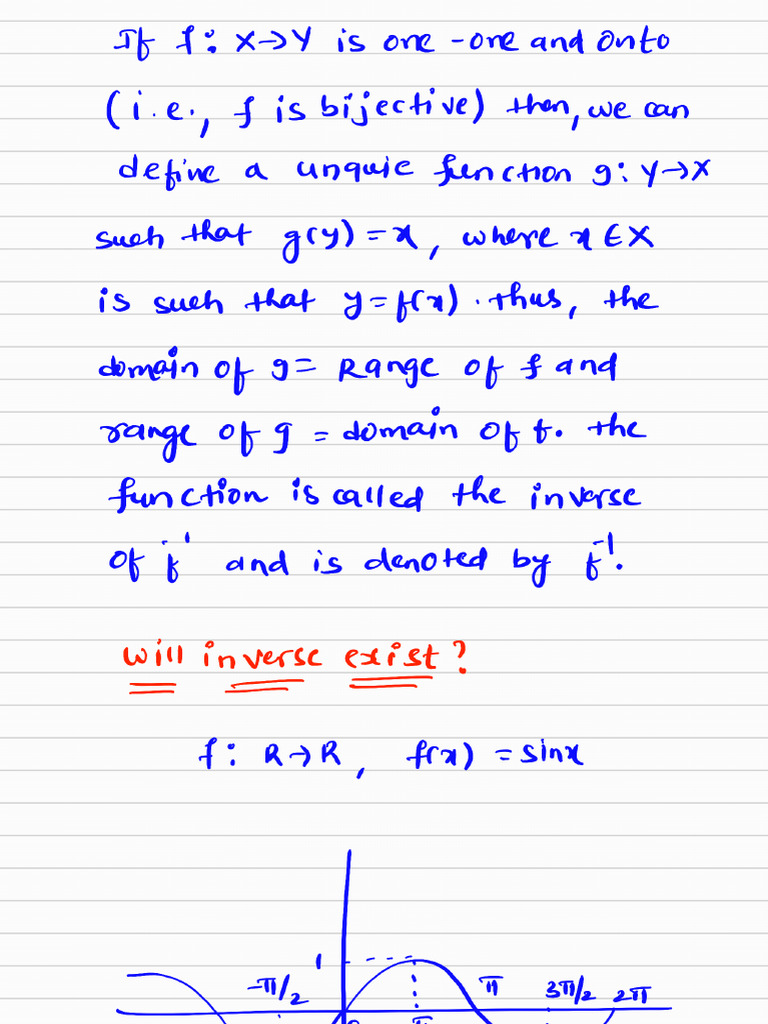 If f: X→Y is one-one and onto
(i.e., f is bijective) then, we can
define a unquie function g: Y→X
such that g(y) = x, where x ∈ X
is such that y = f(x). thus, the
domain of g = Range of f and
range of g = domain of f. the
function is called the inverse
of 'f' and is denoted by f⁻¹.
Will inverse exist?
f: R→R, f(x) = sinx
1
-π/2 π 3π/2 2π